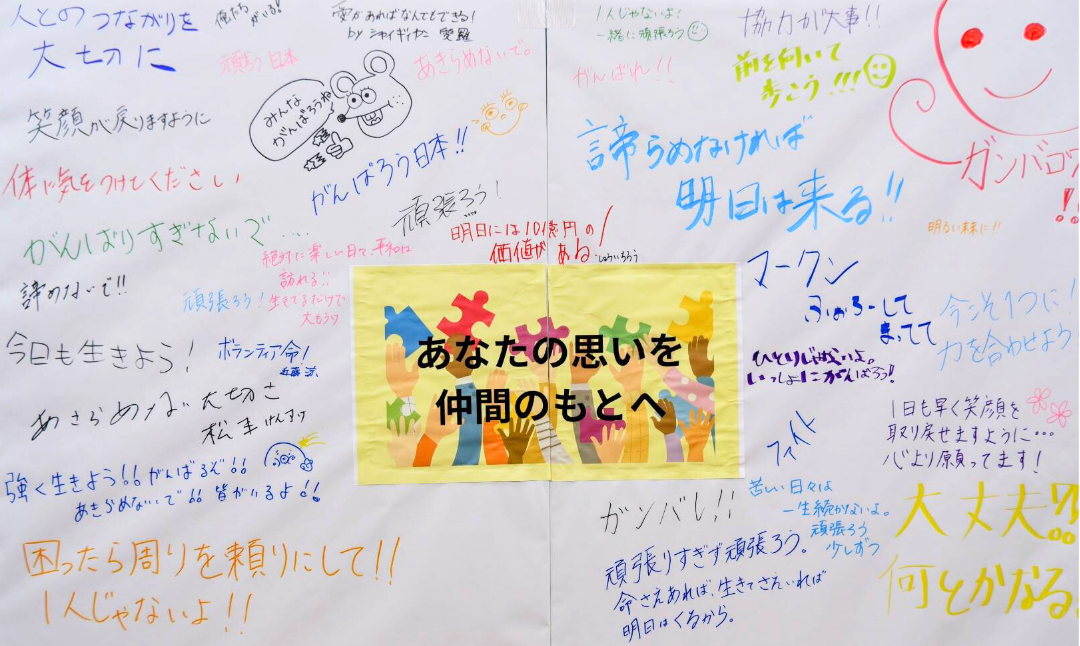 人とのつながりを
大切に
俺たちがいる!!
愛があればなんでもできる!
by シャイディナー 愛羅
頑張ろう日本
あきらめないで。
みんな
がんばろうね
笑顔が戻りますように
体に気をつけてください
がんばろう日本!!
頑張ろう!
がんばりすぎないで…
絶対に楽しい日々、平和は
訪れる!!
生きてるだけで
大もうけ
明日には101億円の
価値がある!
しょういちろう
諦めないで!!
頑張ろう!
今日も生きよう!
ボランティア命!
あきらめない大切さ
強く生きよう!!がんばるぞ!!
あきらめないで!!皆がいるよ!!
困ったら周りを頼りにして!!
1人じゃないよ!!
あなたの思いを
仲間のもとへ
1人じゃないよ!
一緒に頑張ろう
がんばれ!!
協力が大事!!
前を向いて
歩こう!!!
ガンバロウ
!!
諦らめなければ
明日は来る!!
明るい未来に!!
マークン
ふぉろーして
まってて
今こそ1つに!
力を合わせよう
ひとりじゃないよ。
いっしょにがんばろう!
1日も早く笑顔を
取り戻せますように…
心より願ってます!
ファイト
苦しい日々は
一生続かないよ。
頑張ろう
少しずつ
ガンバレ!!
頑張りすぎず頑張ろう。
命さえあれば、生きてさえいれば
明日はくるから。
大丈夫!!
何とかなる